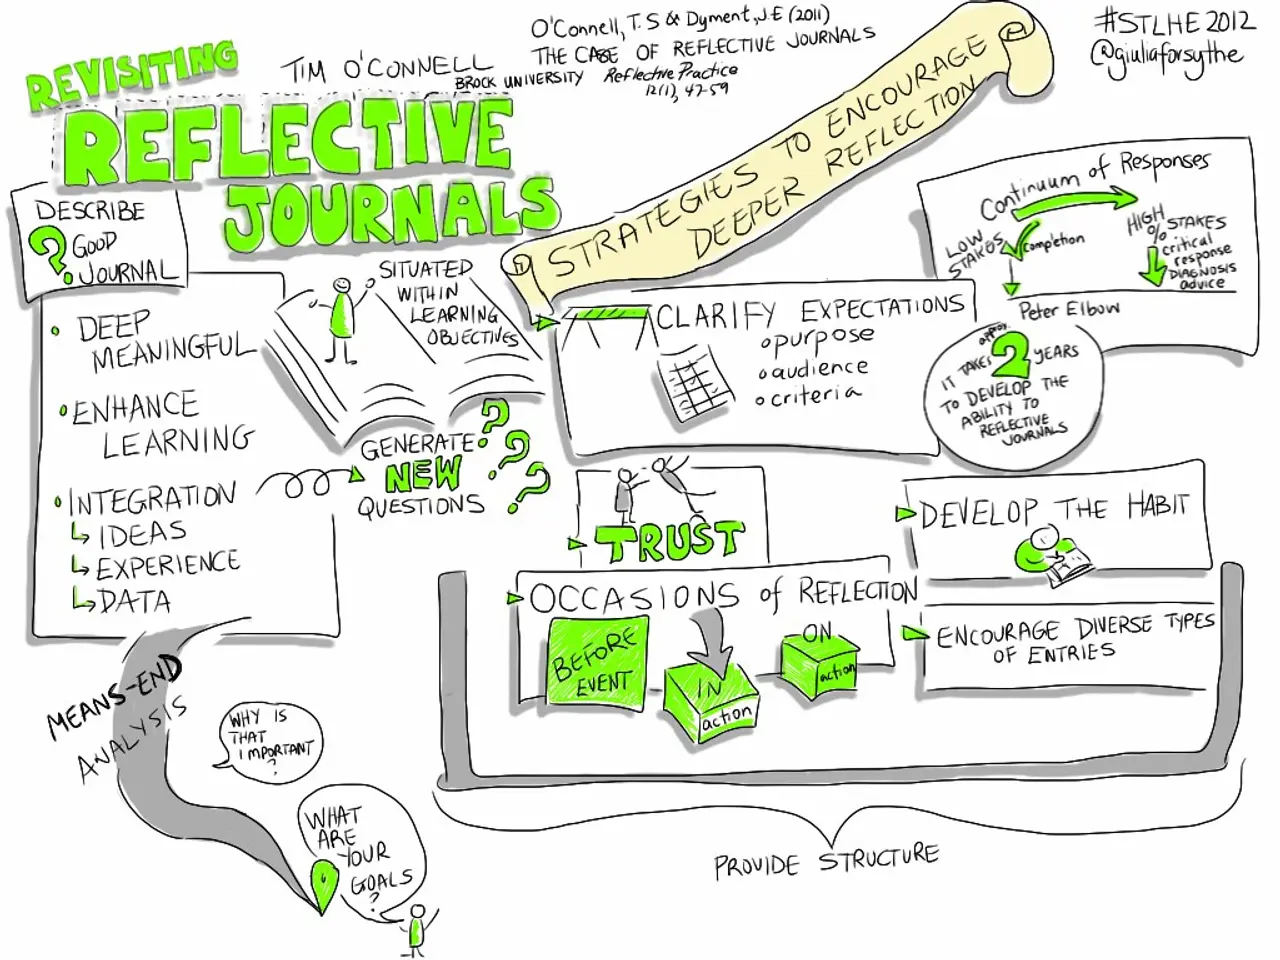 REVISITING
REFLECTIVE
JOURNALS
TIM O'CONNELL
BROCK UNIVERSITY
O'Connell, T.S & Dyment, J.E (2011)
THE CASE OF REFLECTIVE JOURNALS
Reflective Practice
12(1), 47-59
#STLHE 2012
@giuliaforsythe
DESCRIBE
? GOOD
JOURNAL
• DEEP
MEANINGFUL
• ENHANCE
LEARNING
• INTEGRATION
↳ IDEAS
↳ EXPERIENCE
↳ DATA
SITUATED
WITHIN
LEARNING
OBJECTIVES
GENERATE
NEW
QUESTIONS
? ? ?
MEANS-END
ANALYSIS
WHY IS
THAT
IMPORTANT
?
WHAT
ARE
YOUR
GOALS
?
STRATEGIES TO ENCOURAGE
DEEPER REFLECTION
CLARIFY EXPECTATIONS
o purpose
o audience
o criteria
Continuum of Responses
LOW
STAKES
completion
HIGH STAKES
%
critical
response
DIAGNOSIS
advice
Peter Elbow
approx.
IT TAKES 2 YEARS
TO DEVELOP THE
ABILITY TO
REFLECTIVE
JOURNALS
TRUST
DEVELOP THE HABIT
OCCASIONS of REFLECTION
BEFORE
EVENT
IN
action
ON
action
ENCOURAGE DIVERSE TYPES
OF ENTRIES
PROVIDE STRUCTURE